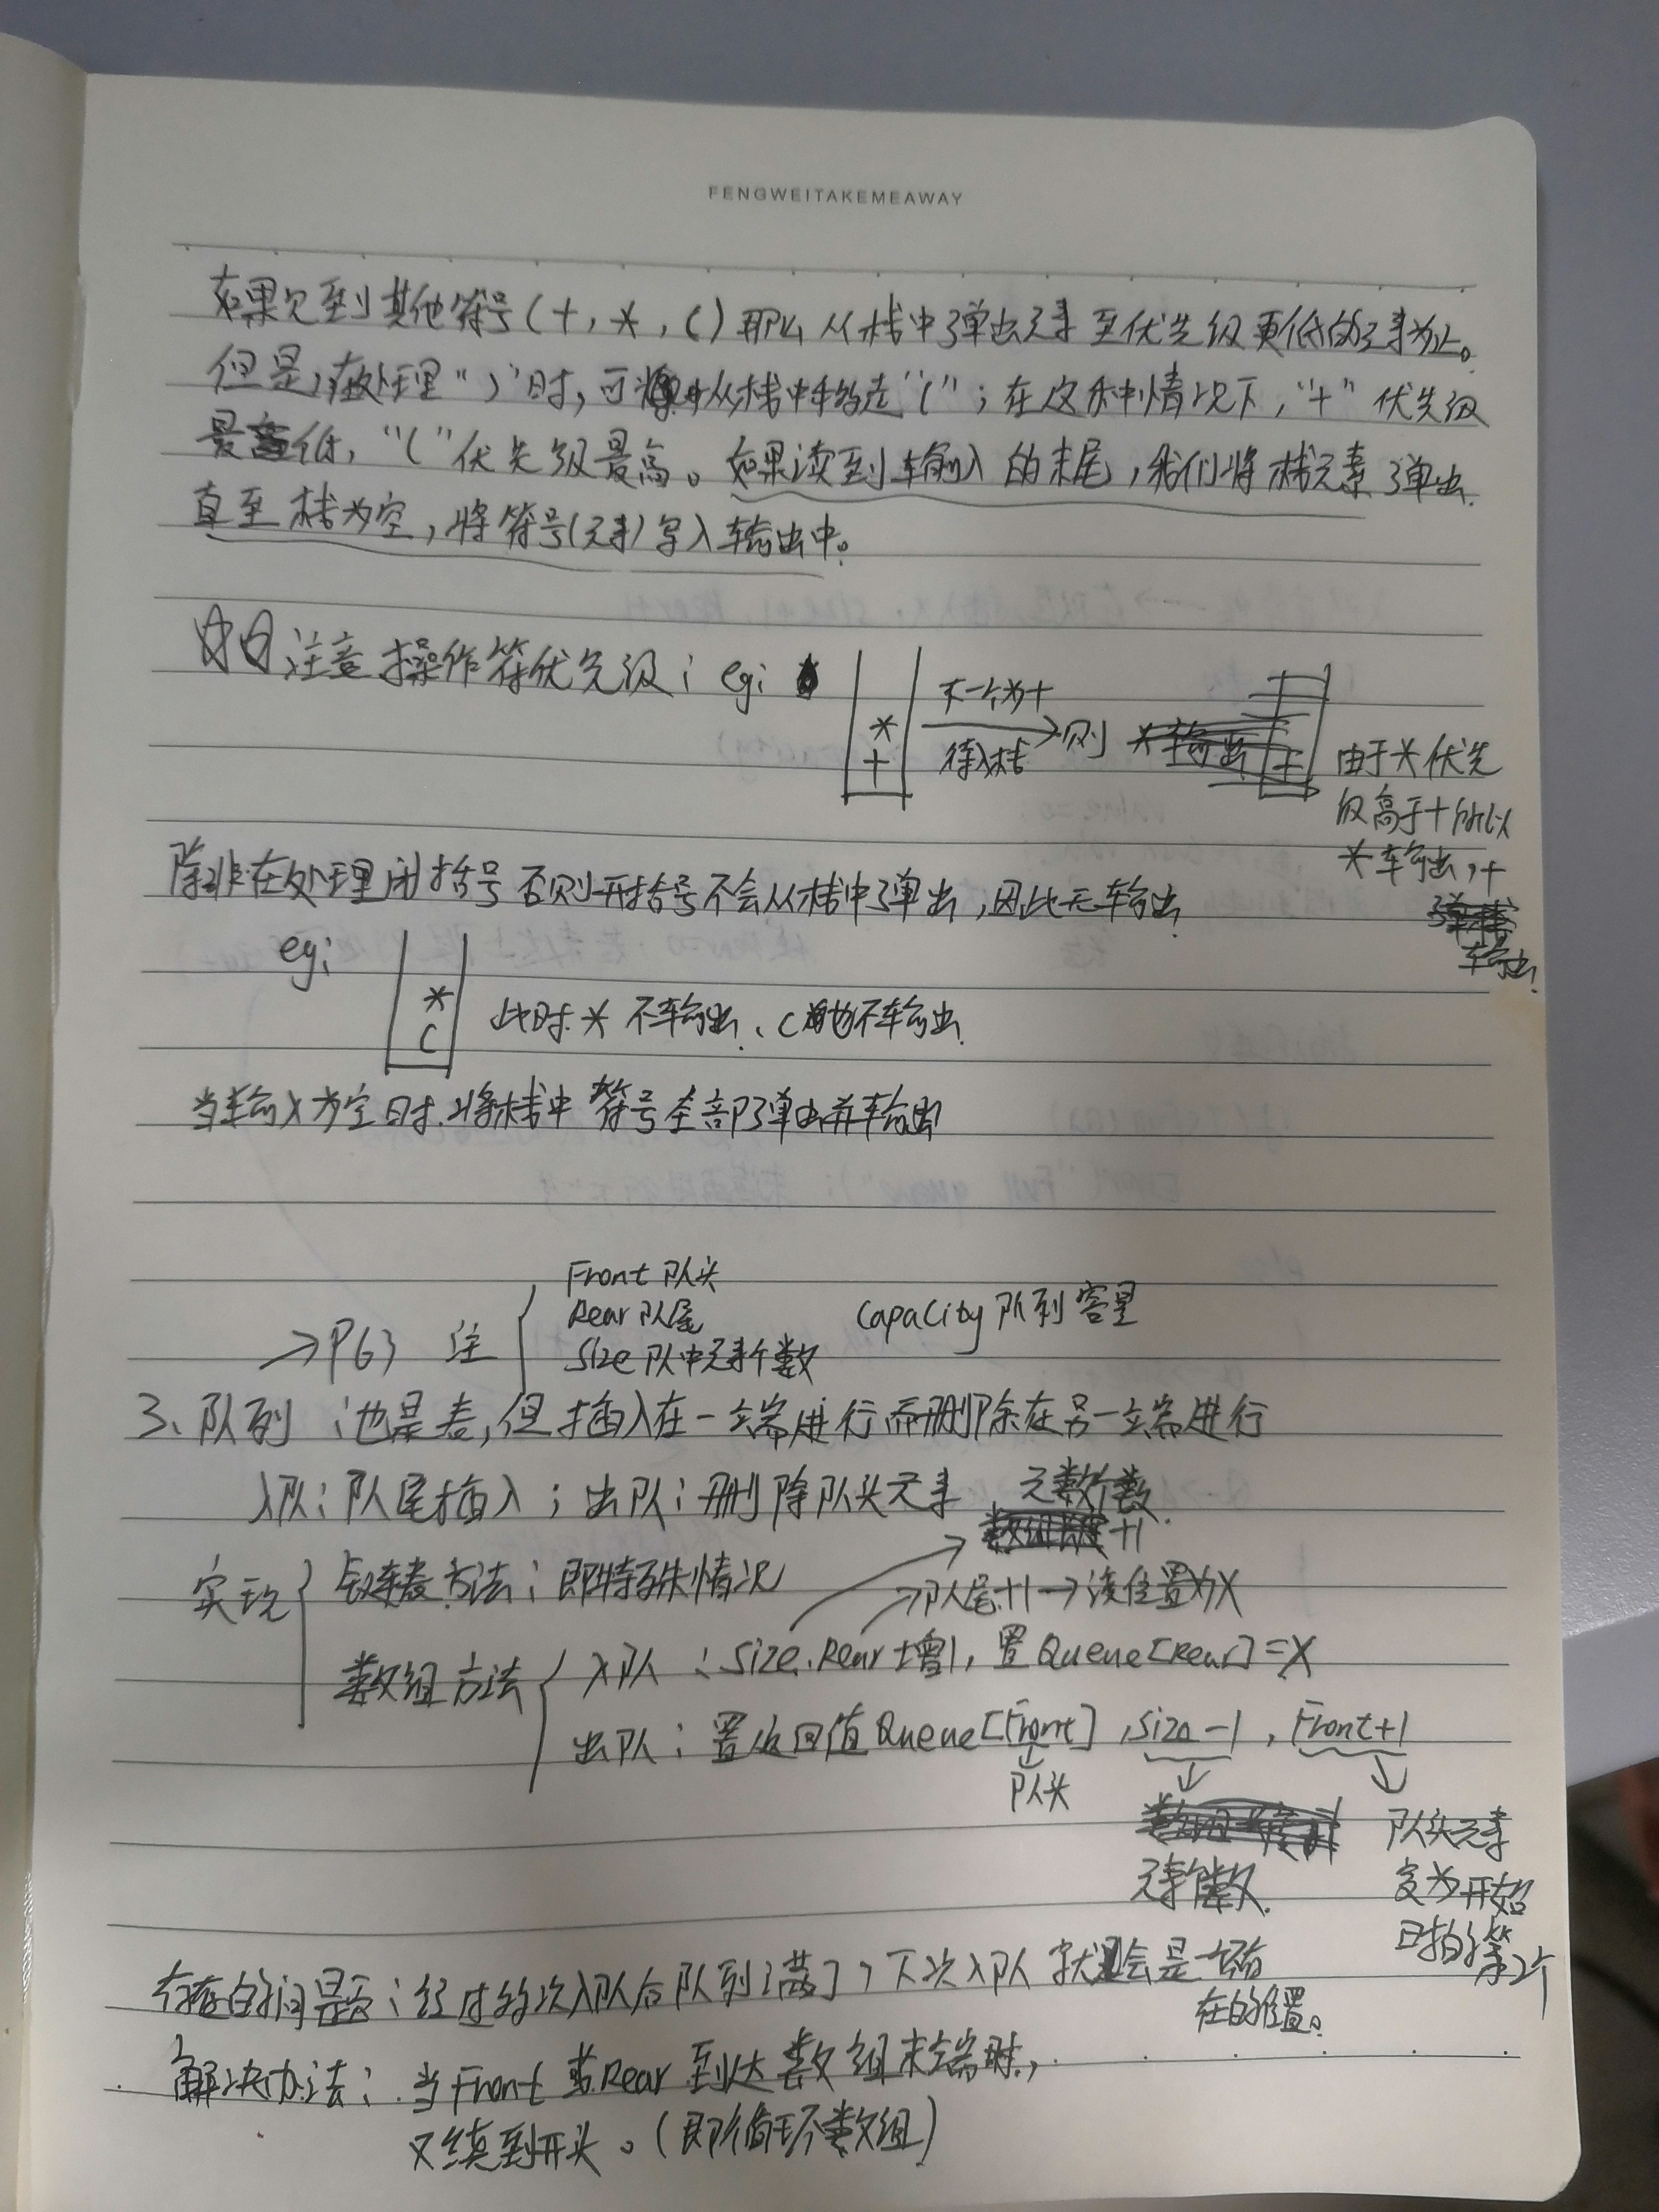 FENGWEITAKEMEAWAY
如果见到其他符号(+,*,()那么从栈中弹出元素至优先级更低的元素为止。
但是,在处理")"时,可从栈中移走"(";在这种情况下,"+"优先级
最低,"("优先级最高。如果读到输入的末尾,我们将栈元素弹出
直至栈为空,将符号(元素)写入输出中。
注意操作符优先级; eg:
*
+
下一个为+
待入栈
则
由于*优先
级高于+所以
*输出,+
输出.
除非在处理闭括号否则开括号不会从栈中弹出,因此无输出.
eg:
*
(
此时.*不输出、(也不输出.
当输入为空时.将栈中符号全部弹出并输出
→P63 注
Front 队头
Rear 队尾
Size 队中元素个数
Capacity 队列容量
3、队列:也是表,但插入在一端进行而删除在另一端进行
入队:队尾插入;出队:删除队头元素
元素个数
+1
实现
链表方法:即特殊情况
→队尾+1→该位置为X
数组方法
入队:Size、Rear增1,置Queue[Rear]=X
出队:置返回值Queue[Front],Size-1,Front+1
队头
元素个数.
队头元素
变为开始
时的第2个
存在的问题:经过多次入队后队列满了,下次入队就会是
在的位置。
解决办法:当Front或Rear到达数组末端时,
又绕到开头。(即循环数组)